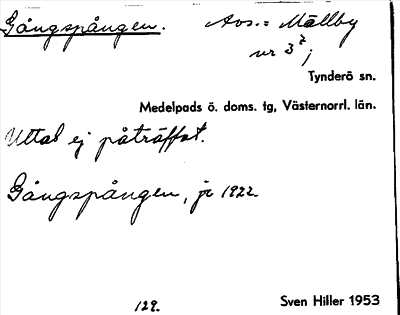 Gångspången. Avs.: Mällby
nr 3²;
Tynderö sn.
Medelpads ö. doms. tg, Västernorrl. län.
Uttal ej påträffat.
Gångspången, jr 1922.
129.
Sven Hiller 1953